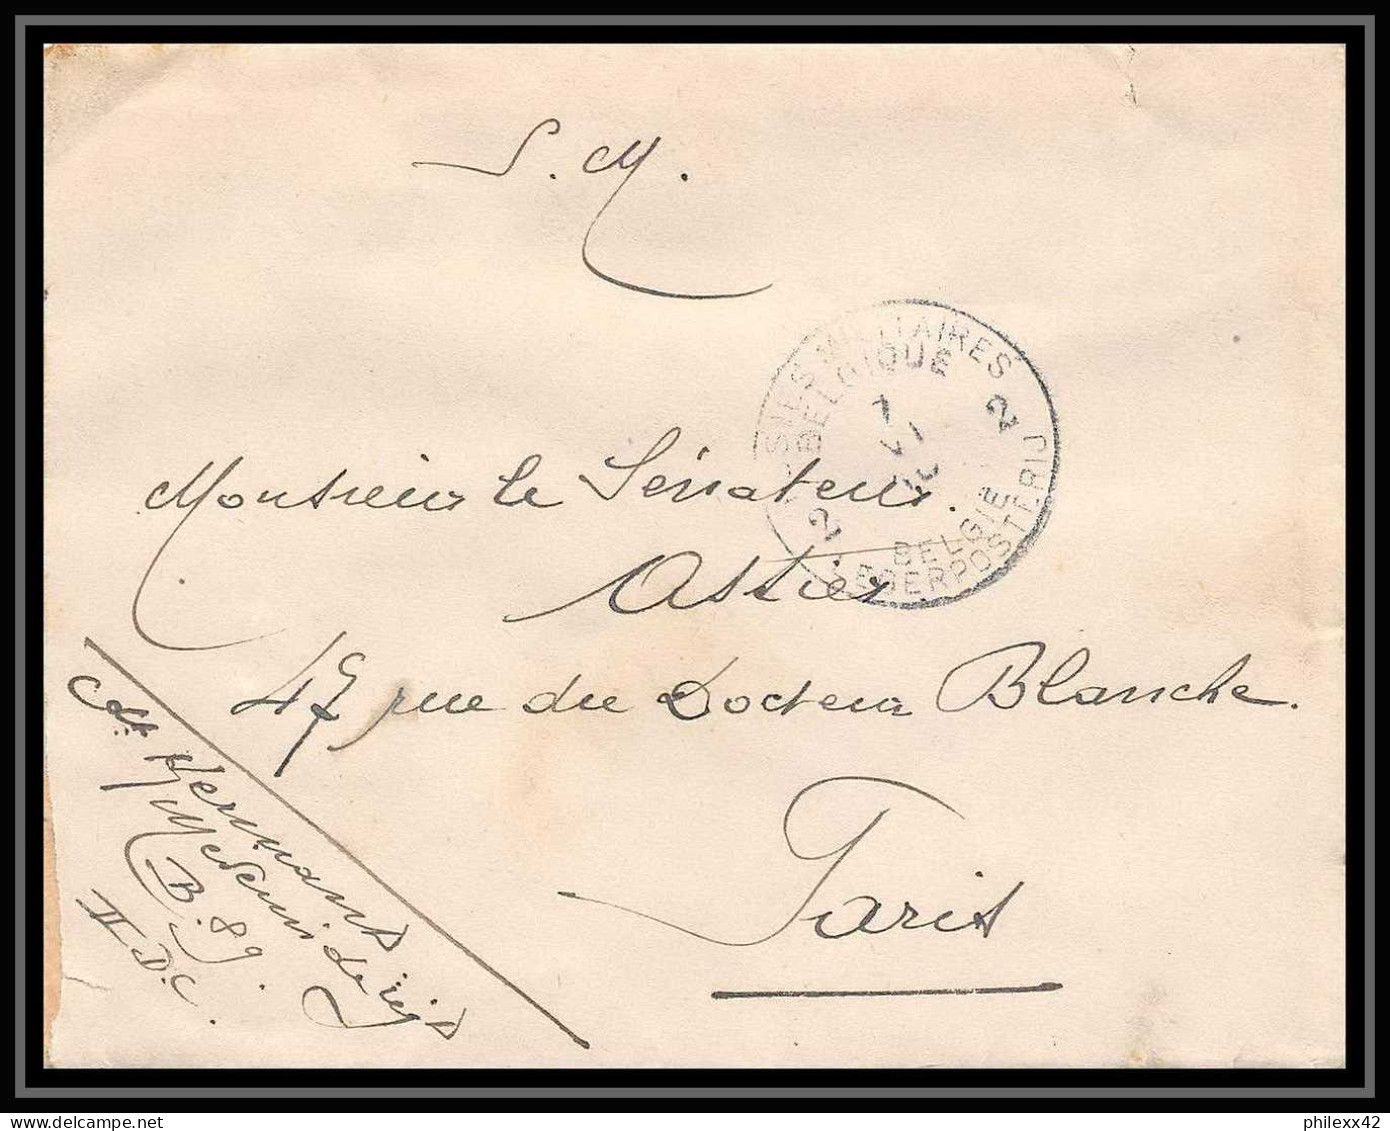 S. M.
POSTES MILITAIRES
BELGIQUE
2
1
VI
2
BELGIE
LEGERPOSTERIJ
Monsieur le Sénateur
Astier
47 rue du Docteur Blanche.
Paris
Hermans
Médecin de régt
B. 89.
II D.C.
philexx42